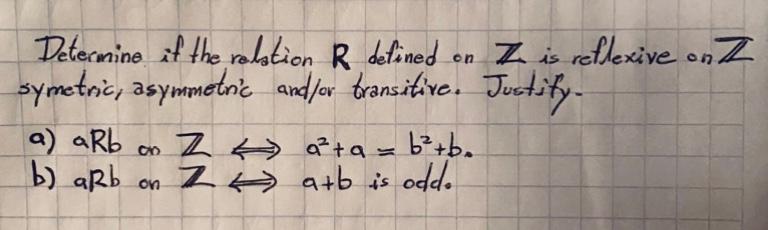 Determine if the relation R defined on ℤ is reflexive on ℤ
symetric, asymmetric and/or transitive. Justify.
a) aRb on ℤ ⟺ a²+a = b²+b.
b) aRb on ℤ ⟺ a+b is odd.